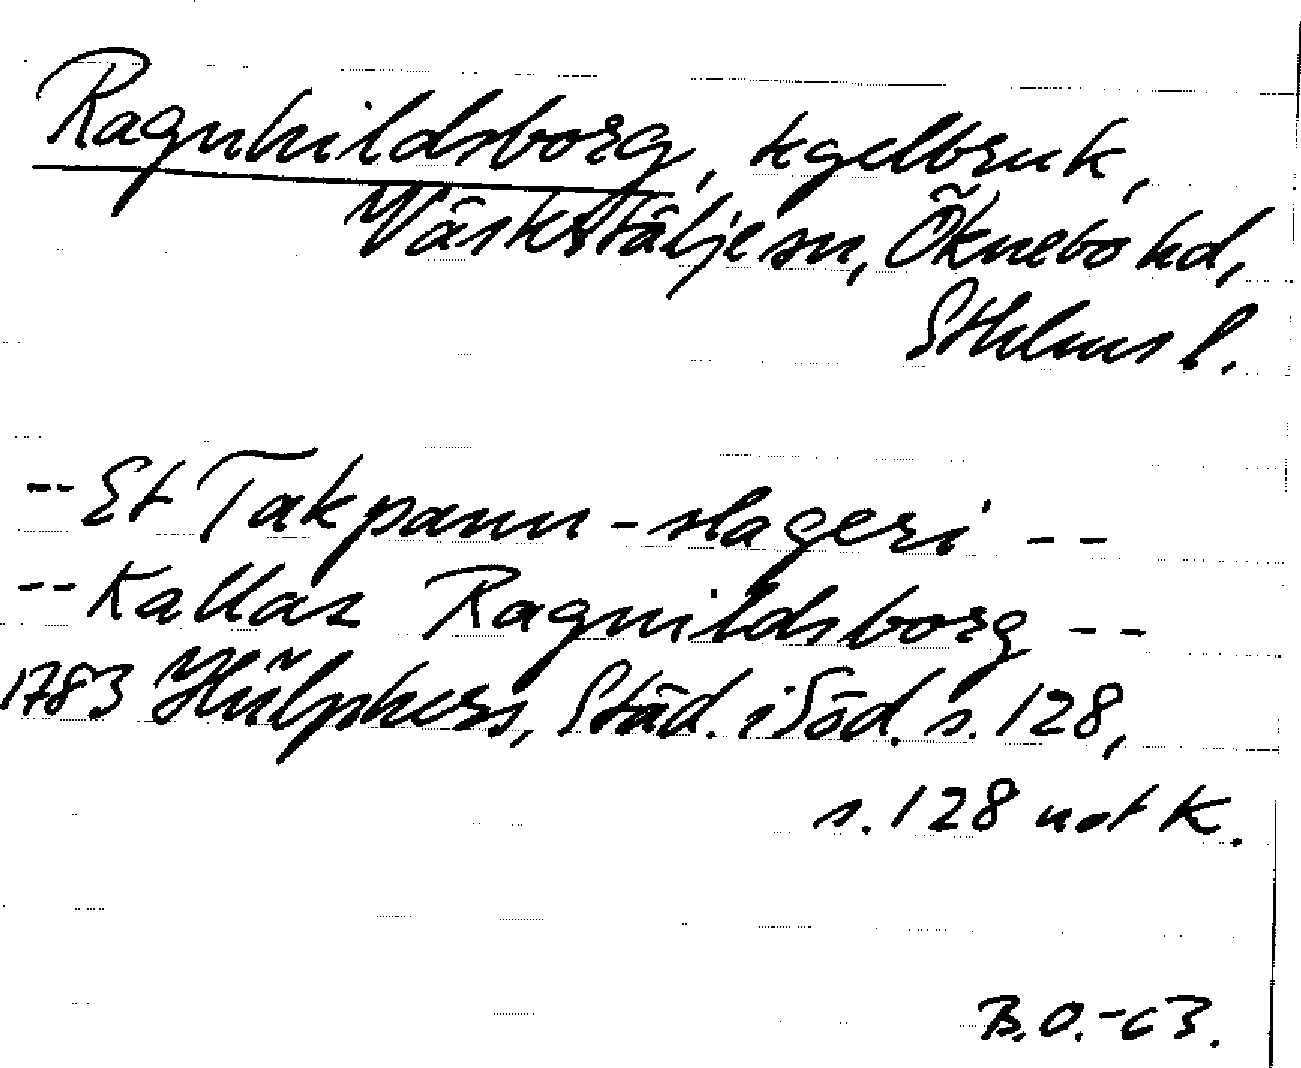 Ragnhildsborg, tgelbruk,
Västertälje sn, Öknebo hd,
Sthlms l.
-- Et Takpann-slageri --
-- Kallaz Ragnildsborg --
1783 Hülphers, Städ. i Söd. s. 128,
s. 128 not K.
B.O.-63.